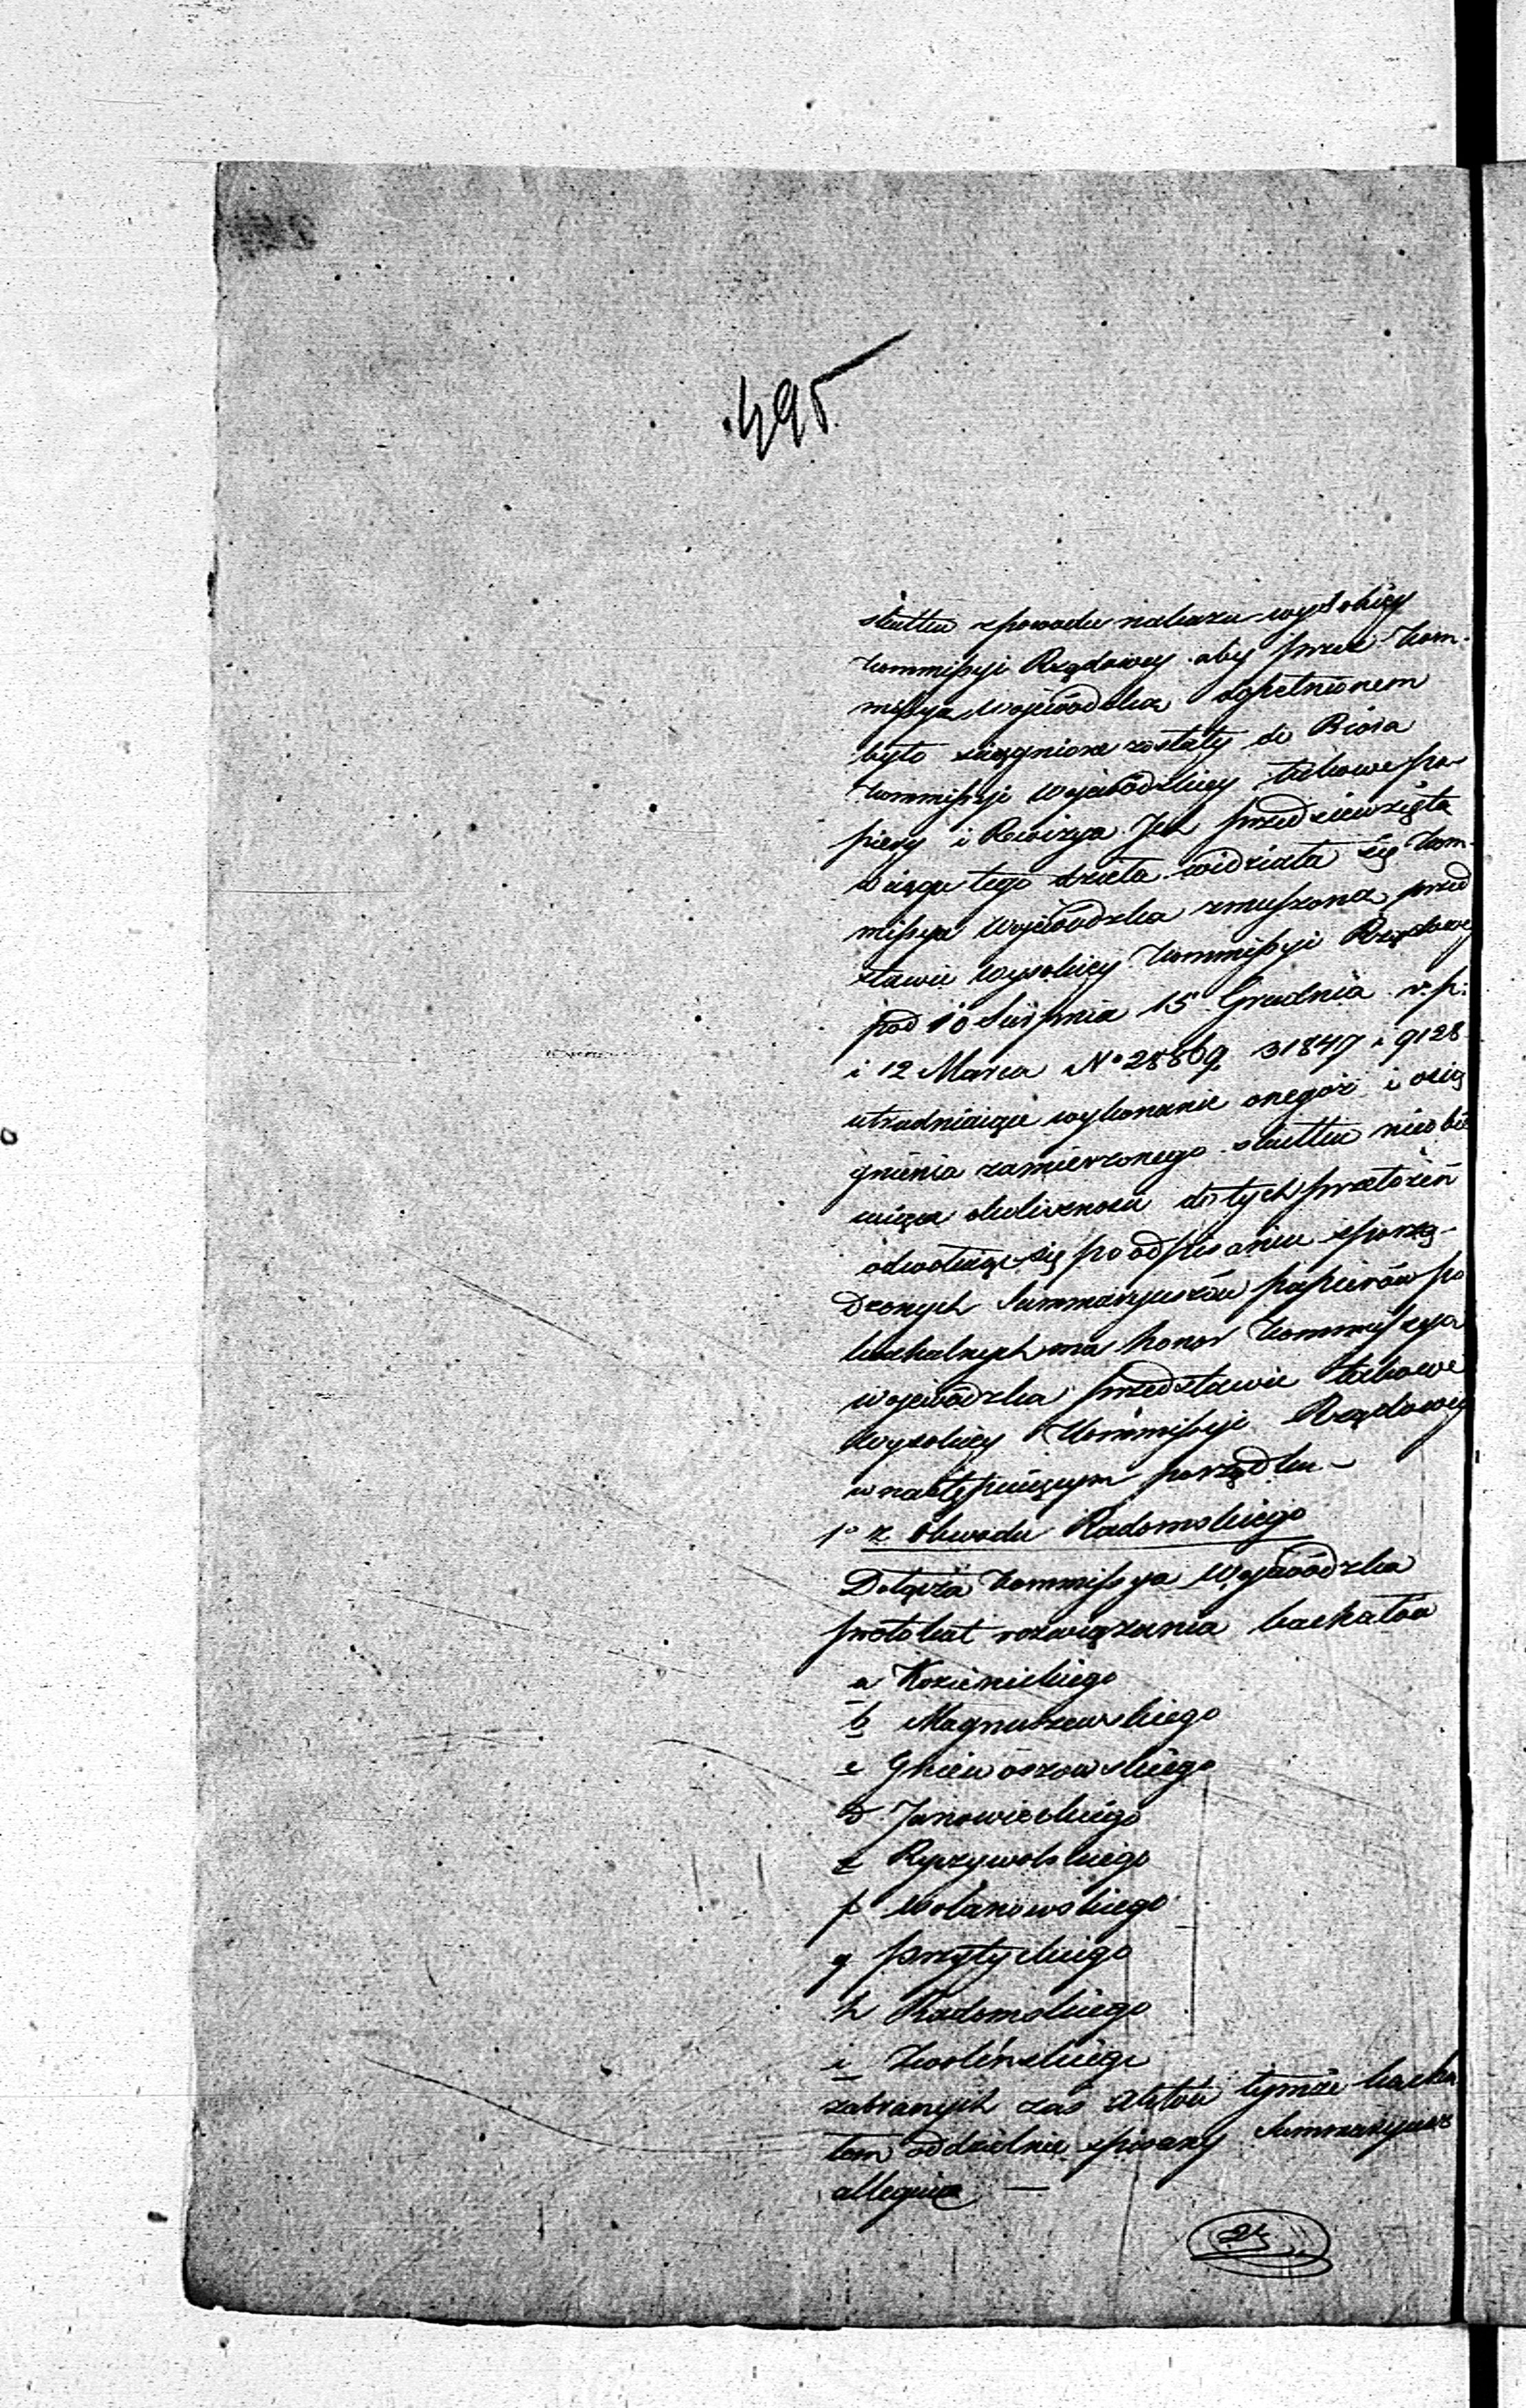 495
skutku z powodu nakazu wysokiey
Kommissyi Rządowey aby przez Kom-
missyą Woiewódzką dopełnionem
było ściągnione zostały do Biora
Kommissyi Woiewódzkiey takowe pa-
piery i Rewizya Ich przedsięwzięta
W ciągu tego dzieła widziała się Kom-
missya Woiewódzka zmuszona przed
stawić Wysokiey Kommissyi Rządowey
pod 10 Sierpnia 15 Grudnia r. p:
i 12 Marca No 28869 31847 i 9128
utrudniaiące wykonanie onegoż i osią
gnienia zamierzonego skutku
okoliczności do tych przełożeń
odwołuiąc się po odpisaniu sporzą-
dzonych Summaryuszów papierów po
kachalnych ma honor Kommissya
Woiewódzka przedstawić takowe
Wysokiey Kommissyi Rządowey
w następuiącym porządku –
1o z Obwodu Radomskiego
Dołącza Kommissya Woiewódzka
protokuł rozwiązania kachałów
a Kozienickiego
b Magnuszewskiego
c Gniewoszowskiego
d Janowieckiego
e Ryczywolskiego
f Wolanowskiego
g Przytyckiego
h Radomskiego
i Zwoleńskiego
zabranych zaś aktów tymże kacha
łom oddzielnie spisany Summaryusz
alleguie —